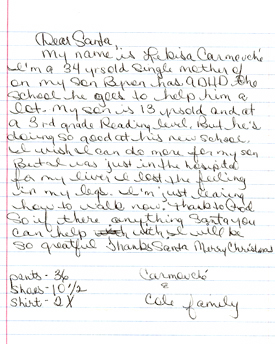 Dear Santa,
My name is Kibisa Carmouché
I'm a 34 yrs old single mother of
on my son Byron has ADHD. the
School he goes to help him a
lot. My son is 13 yrs old and at
a 3rd grade Reading level. But he's
doing so good at his new school.
I wish I can do more for my son
But I was just in the hospital
for my liver I lost the feeling
in my legs. I'm just learing
how to walk now. Thanks to God
So if there anything Santa you
can help with I will be
so greatful Thanks Santa Merry Christmas
pants - 36
Shoes - 10 1/2
shirt - 2X
Carmouché
&
Cole family